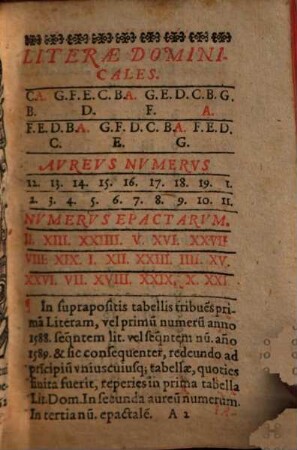 LITERÆ DOMINI-
CALES.
CA. G. F. E. C. BA. G. E. D. C. B. G.
B. D. F. A.
F. E. D. BA. G. F. D. C. BA. F. E. D.
C. E. G.
AVREVS NVMERVS
12. 13. 14. 15. 16. 17. 18. 19. 1.
2. 3. 4. 5. 6. 7. 8. 9. 10. 11.
NVMERVS EPACTARVM.
II. XIII. XXIIII. V. XVI. XXVII
VIII. XIX. I. XII XXIII. IIII. XV.
XXVI. VII. XVIII XXIX. X. XXI.
¶ In suprapositis tabellis tribués pri-
má Literam, vel primũ numerũ anno
1588. seqñtem lit. vel seqñtem nũ. año
1589. & sic consequenter, redeundo ad
prĩcipiũ vniuscuiusq; tabellæ, quoties
finita fuerit, reperies in prima tabella
Lit. Dom. In secunda aureũ numerum.
In tertia nũ. epactalé. A 2